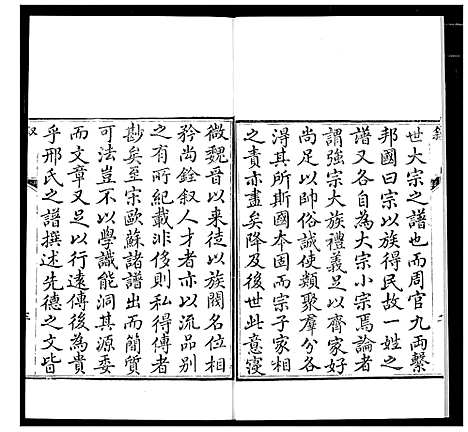 世大宗之譜也而周官九兩繫
邦國曰宗以族得民故一姓之
譜又各自為大宗小宗焉論者
謂強宗大族禮義足以齊家好
尚足以帥俗誠使類聚羣分各
得其所斯國本固而宗子家相
之責亦盡矣降及後世此意寖
微魏晉以來徒以族閥名位相
矜尚銓叙人才者亦以流品別
之有所紀載非侈則私得傳者
尠矣至宗歐蘇諸譜出而簡質
可法豈不以學識能洞其源委
而文章又足以行遠傳後為貴
乎邢氏之譜撰述先德之文皆